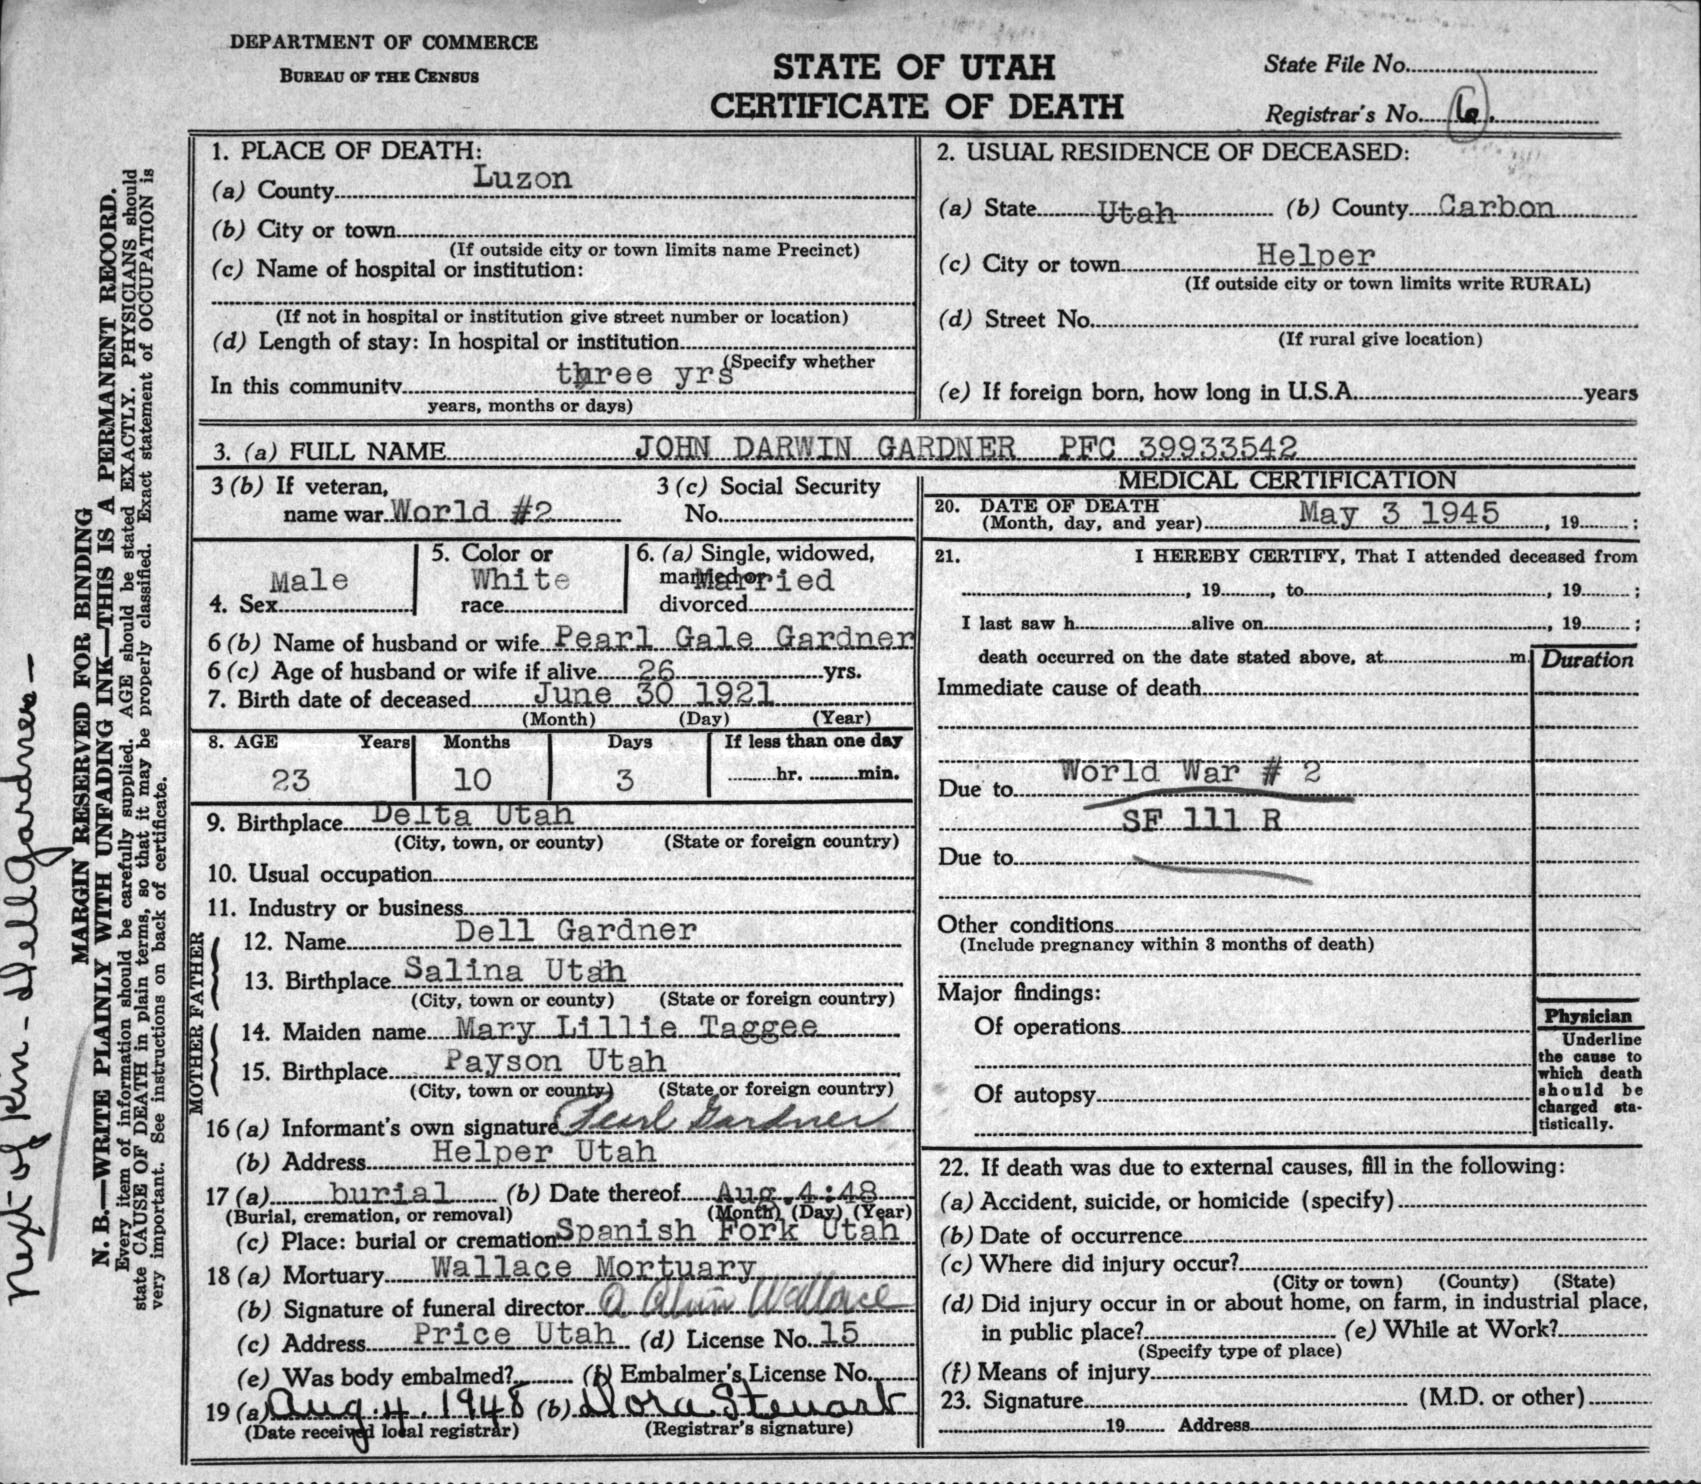 DEPARTMENT OF COMMERCE
BUREAU OF THE CENSUS
STATE OF UTAH
CERTIFICATE OF DEATH
State File No.
Registrar's No. 6.
MARGIN RESERVED FOR BINDING
N. B.—WRITE PLAINLY WITH UNFADING INK—THIS IS A PERMANENT RECORD.
Every item of information should be carefully supplied. AGE should be stated EXACTLY. PHYSICIANS should
state CAUSE OF DEATH in plain terms, so that it may be properly classified. Exact statement of OCCUPATION is
very important. See instructions on back of certificate.
next of Kin - Dell Gardner -
1. PLACE OF DEATH:
(a) County Luzon
(b) City or town
(If outside city or town limits name Precinct)
(c) Name of hospital or institution:
(If not in hospital or institution give street number or location)
(d) Length of stay: In hospital or institution
(Specify whether
In this community three yrs
years, months or days)
2. USUAL RESIDENCE OF DECEASED:
(a) State Utah (b) County Carbon
(c) City or town Helper
(If outside city or town limits write RURAL)
(d) Street No.
(If rural give location)
(e) If foreign born, how long in U.S.A. years
3. (a) FULL NAME JOHN DARWIN GARDNER PFC 39933542
3 (b) If veteran,
name war World #2
3 (c) Social Security
No.
4. Sex Male
5. Color or
race White
6. (a) Single, widowed,
married or
divorced Married
6 (b) Name of husband or wife Pearl Gale Gardner
6 (c) Age of husband or wife if alive 26 yrs.
7. Birth date of deceased June 30 1921
(Month) (Day) (Year)
8. AGE Years Months Days If less than one day
23 10 3 hr. min.
9. Birthplace Delta Utah
(City, town, or county) (State or foreign country)
10. Usual occupation
11. Industry or business
FATHER
12. Name Dell Gardner
13. Birthplace Salina Utah
(City, town or county) (State or foreign country)
MOTHER
14. Maiden name Mary Lillie Taggee
15. Birthplace Payson Utah
(City, town or county) (State or foreign country)
16 (a) Informant's own signature Pearl Gardner
(b) Address Helper Utah
17 (a) burial (b) Date thereof Aug. 4:48
(Burial, cremation, or removal) (Month) (Day) (Year)
(c) Place: burial or cremation Spanish Fork Utah
18 (a) Mortuary Wallace Mortuary
(b) Signature of funeral director Wallace
(c) Address Price Utah (d) License No. 15
(e) Was body embalmed? (f) Embalmer's License No.
19 (a) Aug. 4. 1948 (b) Dora Stewart
(Date received local registrar) (Registrar's signature)
MEDICAL CERTIFICATION
20. DATE OF DEATH
(Month, day, and year) May 3 1945, 19 ;
21. I HEREBY CERTIFY, That I attended deceased from
, 19 , to , 19 ;
I last saw h alive on , 19 ;
death occurred on the date stated above, at m.
Duration
Immediate cause of death
Due to World War # 2
SF 111 R
Due to
Other conditions
(Include pregnancy within 3 months of death)
Major findings:
Of operations
Of autopsy
Physician
Underline
the cause to
which death
should be
charged sta-
tistically.
22. If death was due to external causes, fill in the following:
(a) Accident, suicide, or homicide (specify)
(b) Date of occurrence
(c) Where did injury occur?
(City or town) (County) (State)
(d) Did injury occur in or about home, on farm, in industrial place,
in public place? (e) While at Work?
(Specify type of place)
(f) Means of injury
23. Signature (M.D. or other)
19 Address